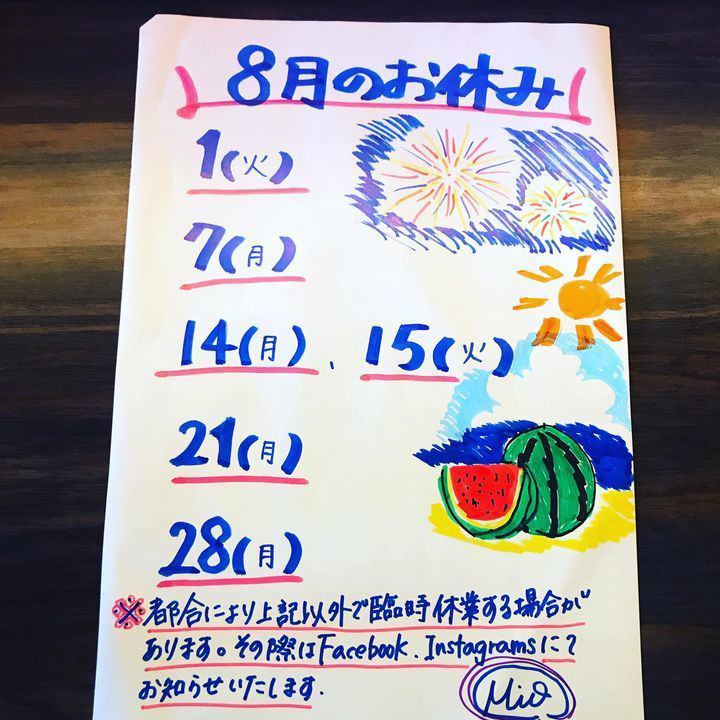 8月のお休み
1(火)
7(月)
14(月)、15(火)
21(月)
28(月)
※都合により上記以外で臨時休業する場合が
あります。その際はFacebook、Instagramsにて
お知らせいたします.